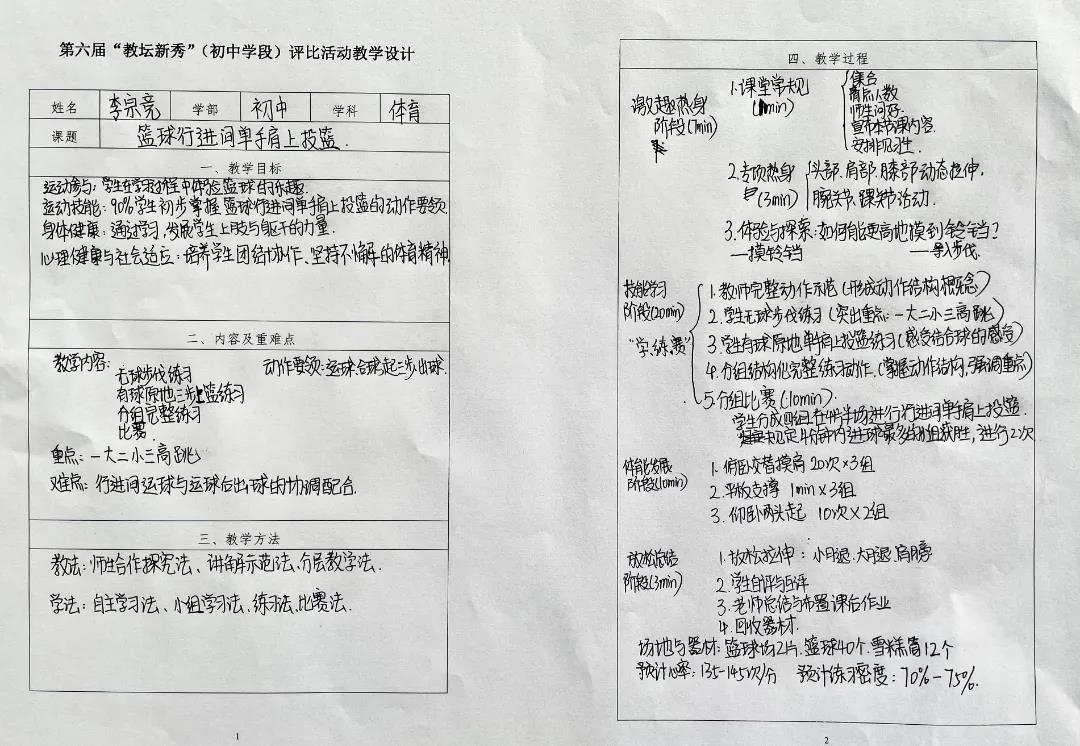 第六届“教坛新秀”（初中学段）评比活动教学设计
姓名 李宗竞 学部 初中 学科 体育
课题 篮球行进间单手肩上投篮.
一、教学目标
运动参与：学生在学习过程中体验篮球的乐趣.
运动技能：90%学生初步掌握篮球行进间单手肩上投篮的动作要领.
身体健康：通过学习,发展学生上肢与躯干的力量.
心理健康与社会适应：培养学生团结协作、坚持不懈的体育精神.
二、内容及重难点
教学内容： 动作要领：运球合球起三步出球.
无球步伐练习
有球原地三步上篮练习
分组完整练习
比赛.
重点：一大二小三高跳
难点：行进间运球与运球后出球的协调配合.
三、教学方法
教法：师生合作探究法、讲解示范法、分层教学法.
学法：自主学习法、小组学习法、练习法、比赛法.
1
四、教学过程
激趣热身
阶段(7min)
1.课堂常规
(1min)
集合
清点人数
师生问好.
宣布本节课内容.
安排见习生.
2.专项热身
(3min)
头部.肩部.膝部动态拉伸.
腕关节.踝关节活动.
3.体验与探索：如何能更高地摸到铃铛？
—摸铃铛 —导入步伐.
技能学习
阶段(20min)
“学、练、赛”
1.教师完整动作示范(形成动作结构概念)
2.学生无球步伐练习(突出重点：一大二小三高跳)
3.学生有球原地单手肩上投篮练习(感受结合球的感受)
4.分组结构化完整练习动作.(掌握动作结构,强调重点)
5.分组比赛(10min).
学生分成四组在半场进行行进间单手肩上投篮.
规定4分钟内进球最多的小组获胜,进行2次
体能发展
阶段(10min)
1.俯卧交替摸肩 20次×3组
2.平板支撑 1min×3组
3.仰卧两头起 10次×2组
放松总结
阶段(3min)
1.放松拉伸：小腿.大腿.肩膀
2.学生自评与互评
3.老师总结与布置课后作业
4.回收器材.
场地与器材：篮球场2片.篮球40个.雪糕筒12个
预计心率：135-145次/分 预计练习密度：70%-75%.
2